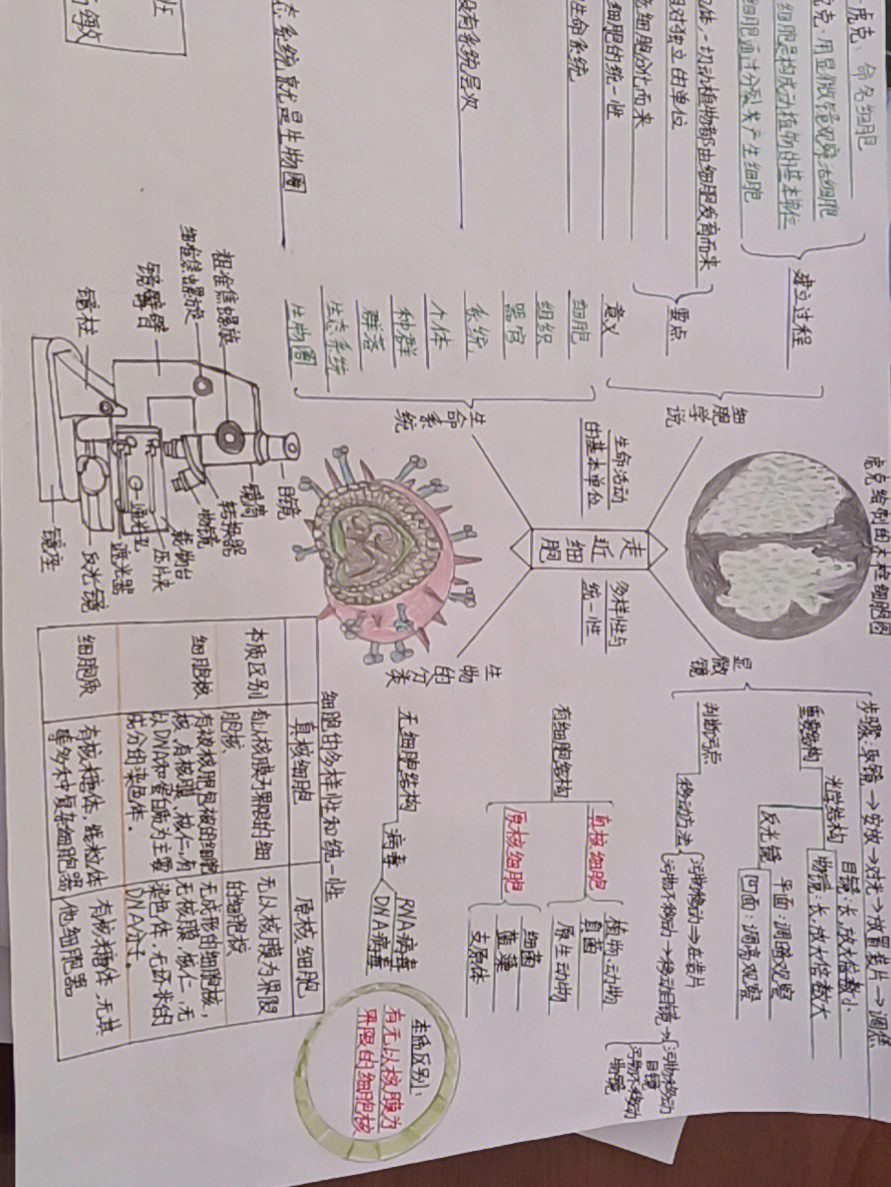 虎克：命名细胞
克：用显微镜观察活细胞
细胞是构成动植物的基本单位
细胞通过分裂产生细胞
建立过程
体，一切动植物都由细胞发育而来
相对独立的单位
细胞分化而来
要点
细胞的统一性
意义
生命系统
细胞
组织
器官
系统
个体
种群
群落
生态系统
生物圈
没有系统层次
态系统就是生物圈
班
敏
细胞学说
生命系统
生命活动的基本单位
走近细胞
多样性与统一性
显微镜
生物的分类
虎克绘制的木栓细胞图
步骤：取镜→安放→对光→放置装片→调焦
重要结构
光学结构
目镜：长，放大倍数小
物镜：长，放大倍数大
反光镜
平面：调暗观察
凹面：调亮观察
判断污点
移动方法
污物移动→在装片
污物不移动→移动目镜→
污物移动
目镜
污物不移动
物镜
有细胞结构
真核细胞
植物、动物
真菌
原生动物
原核细胞
细菌
蓝藻
支原体
无细胞结构
病毒
RNA病毒
DNA病毒
本质区别：
有无以核膜为
界限的细胞核
细准焦螺旋
粗准焦螺旋
镜臂
镜柱
目镜
镜筒
转换器
物镜
载物台
压片夹
通光孔
遮光器
反光镜
镜座
细胞的多样性和统一性
真核细胞
原核细胞
本质区别
有以核膜为界限的细
胞核
无以核膜为界限
的细胞核
细胞核
有被核膜包被的细胞
核，有核膜、核仁，有
以DNA和蛋白质为主要
成分的染色体。
无成形的细胞核，
无核膜，核仁，无
染色体，无环状的
DNA分子。
细胞质
有核糖体，线粒体
等多种复杂细胞器
有核糖体，无其
他细胞器